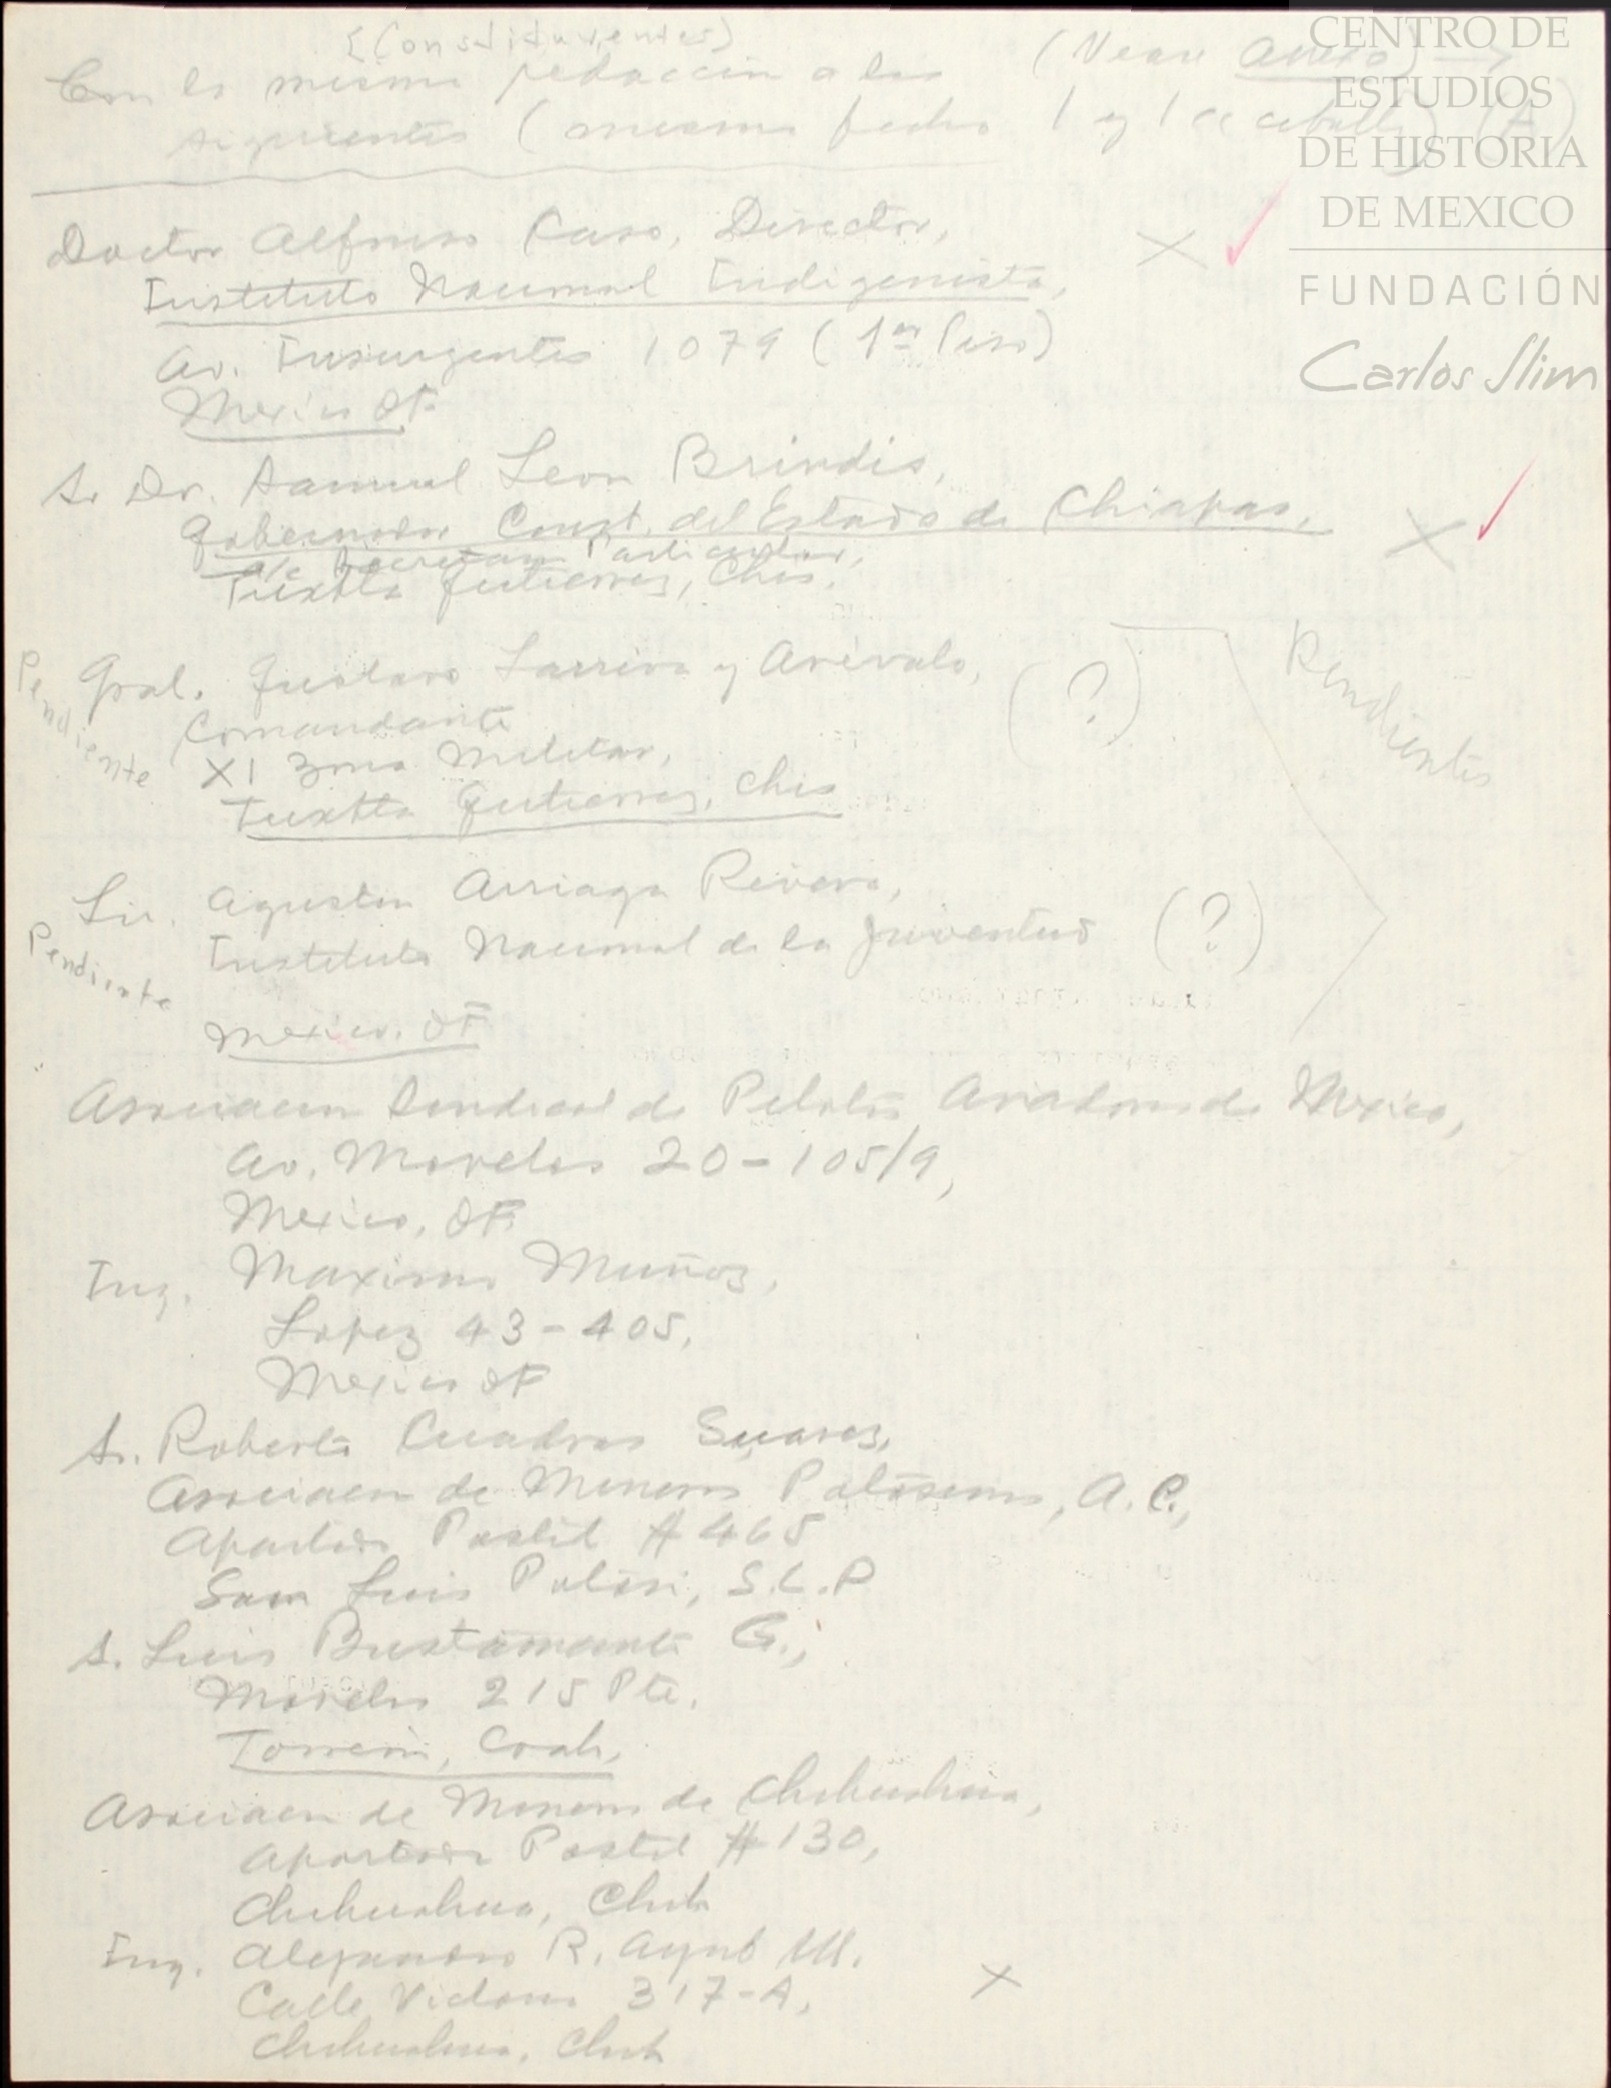 (Constituyentes)
Con la misma redacción a los (Vease Anexo)
siguientes (misma fecha 1 y 1 (A)
CENTRO DE
ESTUDIOS
DE HISTORIA
DE MEXICO
FUNDACIÓN
Carlos Slim
Doctor Alfonso Caso, Director,
Instituto Nacional Indigenista,
Av. Insurgentes 1079 (1er Piso)
Mexico DF.
Sr Dr. Samuel Leon Brindis,
Gobernador Const. del Estado de Chiapas,
a/c Secretario Particular,
Tuxtla Gutierrez, Chis.
Pendiente
Gral. Gustavo Larriva y Arévalo, (?)
Pendientes
Comandante
XI Zona Militar,
Tuxtla Gutierrez, Chis
Lic. Agustin Arriaga Rivera,
Pendiente
Instituto Nacional de la Juventud (?)
Mexico. DF
Asociacion Sindical de Pilotos Aviadores de Mexico,
Av. Morelos 20-105/9,
Mexico, DF.
Ing. Maximo Muñoz,
Lopez 43-405,
Mexico DF
Sr. Roberto Cuadros Suarez,
Asociacion de Mineros Potosinos, A.C.,
Apartado Postal #465
San Luis Potosi, S.L.P
Sr. Luis Bustamante G.,
Morelos 215 Pte.
Torreon, Coah,
Asociacion de Mineros de Chihuahua,
Apartado Postal #130,
Chihuahua, Chih
Ing. Alejandro R. Ayub M.
Calle Victoria 317-A,
Chihuahua, Chih